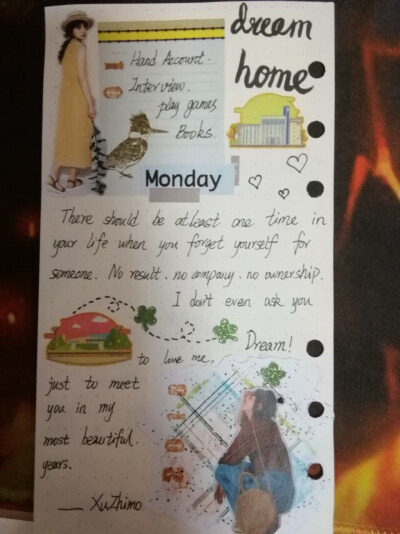 dream
home
Hand Account.
Interview.
play games
Books.
Monday
There should be at least one time in
your life when you forget yourself for
someone. No result. no company. no ownership.
I don't even ask you
Dream!
to love me,
just to meet
you in my
most beautiful.
years.
— XuZhimo